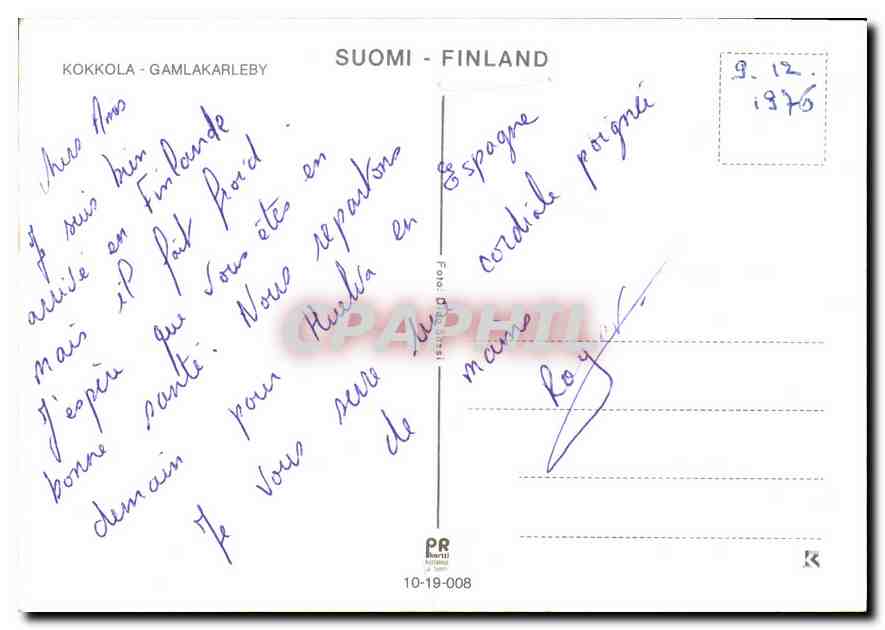 KOKKOLA - GAMLAKARLEBY
SUOMI - FINLAND
9. 12.
1976
Chers Amis
Je suis bien
arrivé en Finlande
mais il fait froid.
J'espère que vous êtes en
bonne santé. Nous repartons
demain pour Huelva en Espagne
Je vous serre une cordiale poignée
de mains
Roger.
CPAPHIL
PR
kortti
10-19-008
K